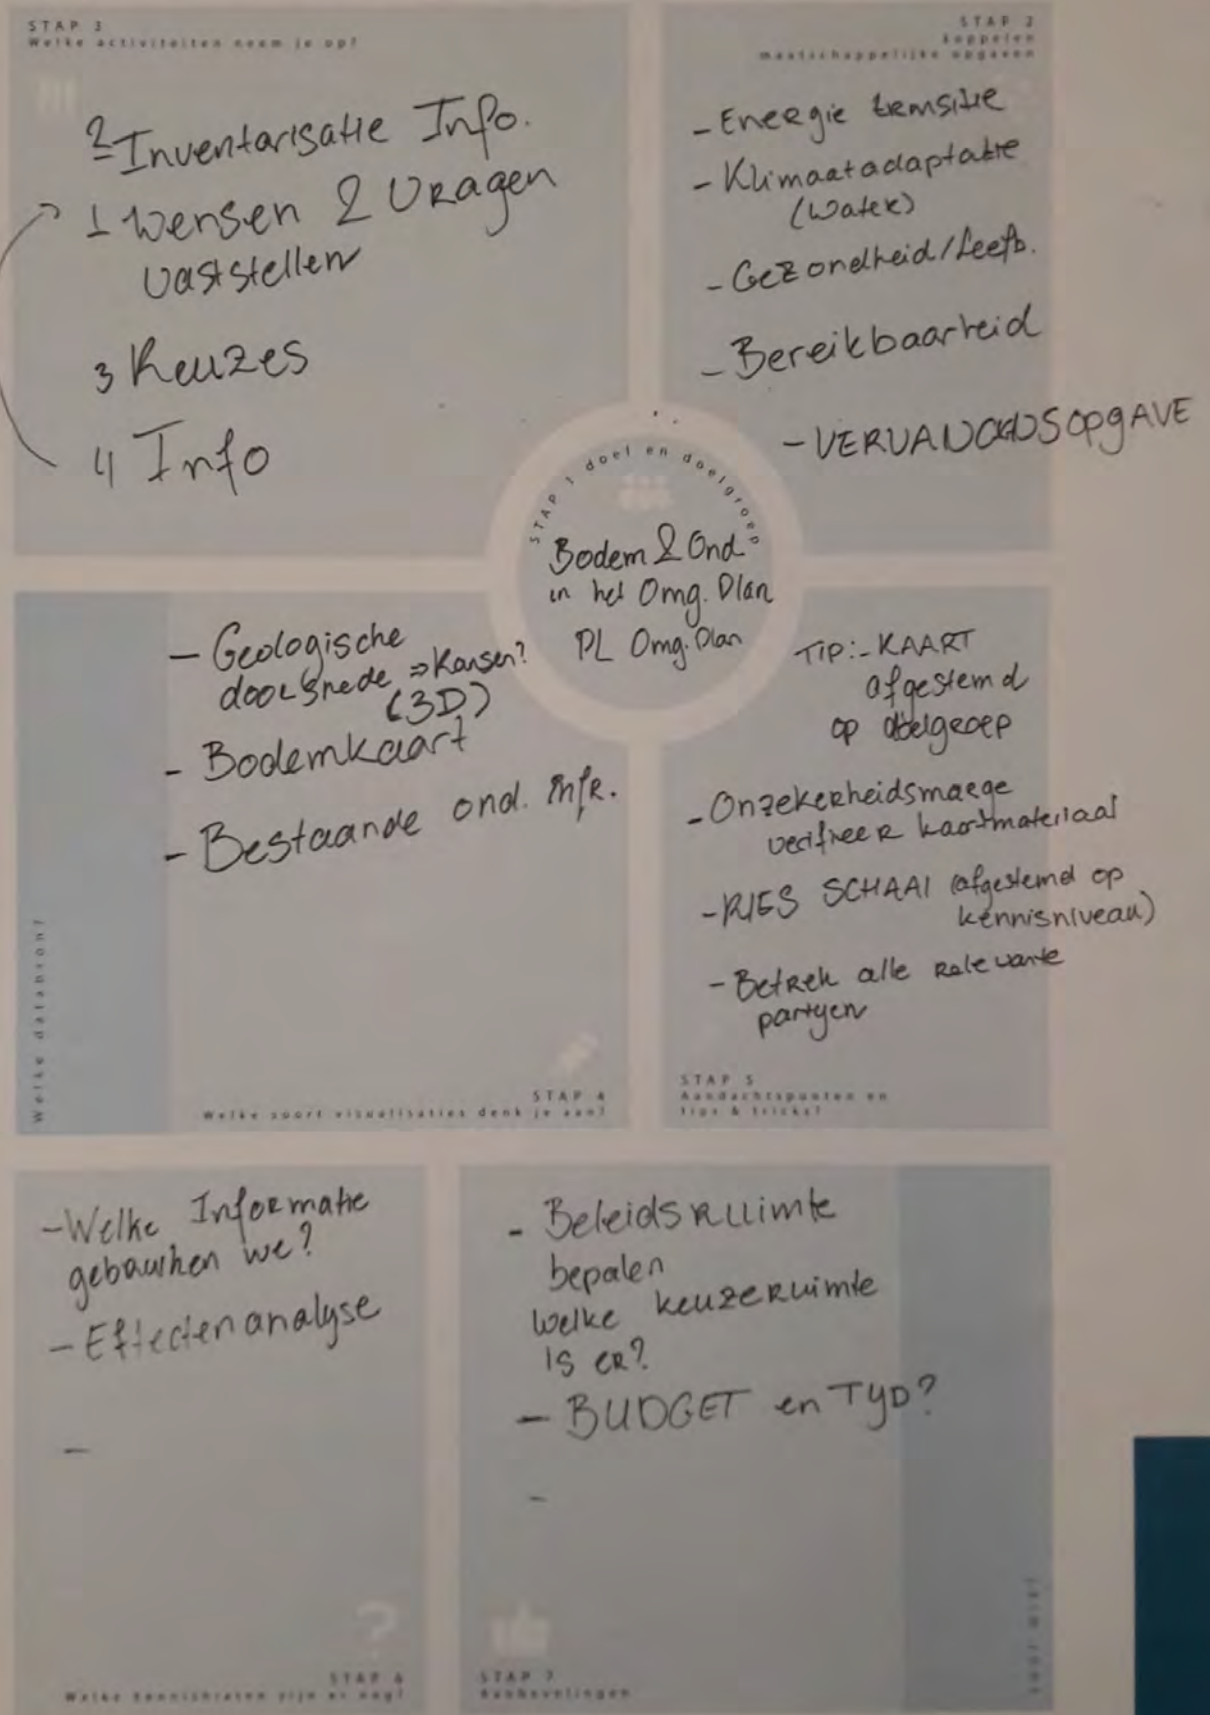 STAP 3
Welke activiteiten neem je op?
2 Inventarisatie Info.
1 Wensen & Vragen
vaststellen
3 Keuzes
4 Info
STAP 2
koppelen
maatschappelijke opgaven
- Energie transitie
- Klimaatadaptatie
(Water)
- Gezondheid/Leefb.
- Bereikbaarheid
- VERVANGINGSOPGAVE
STAP 1 doel en doelgroep
Bodem & Ond
in het Omg. Plan
PL Omg. Plan
- Geologische
doorsnede => Kansen?
(3D)
- Bodemkaart
- Bestaande ond. Infr.
Welke databron?
STAP 4
Welke soort visualisaties denk je aan?
TIP: - KAART
afgestemd
op doelgroep
- Onzekerheidsmarge
verifieer kaartmateriaal
- KIES SCHAAl (afgestemd op
kennisniveau)
- Betrek alle relevante
partyen
STAP 5
Aandachtspunten en
tips & tricks?
- Welke Informatie
gebruiken we?
- Effectenanalyse
-
STAP 6
Welke kennishiaten zijn er nog?
- Beleidsruimte
bepalen
welke keuzeruimte
is er?
- BUDGET en TyD?
-
STAP 7
Aanbevelingen
voor wie?